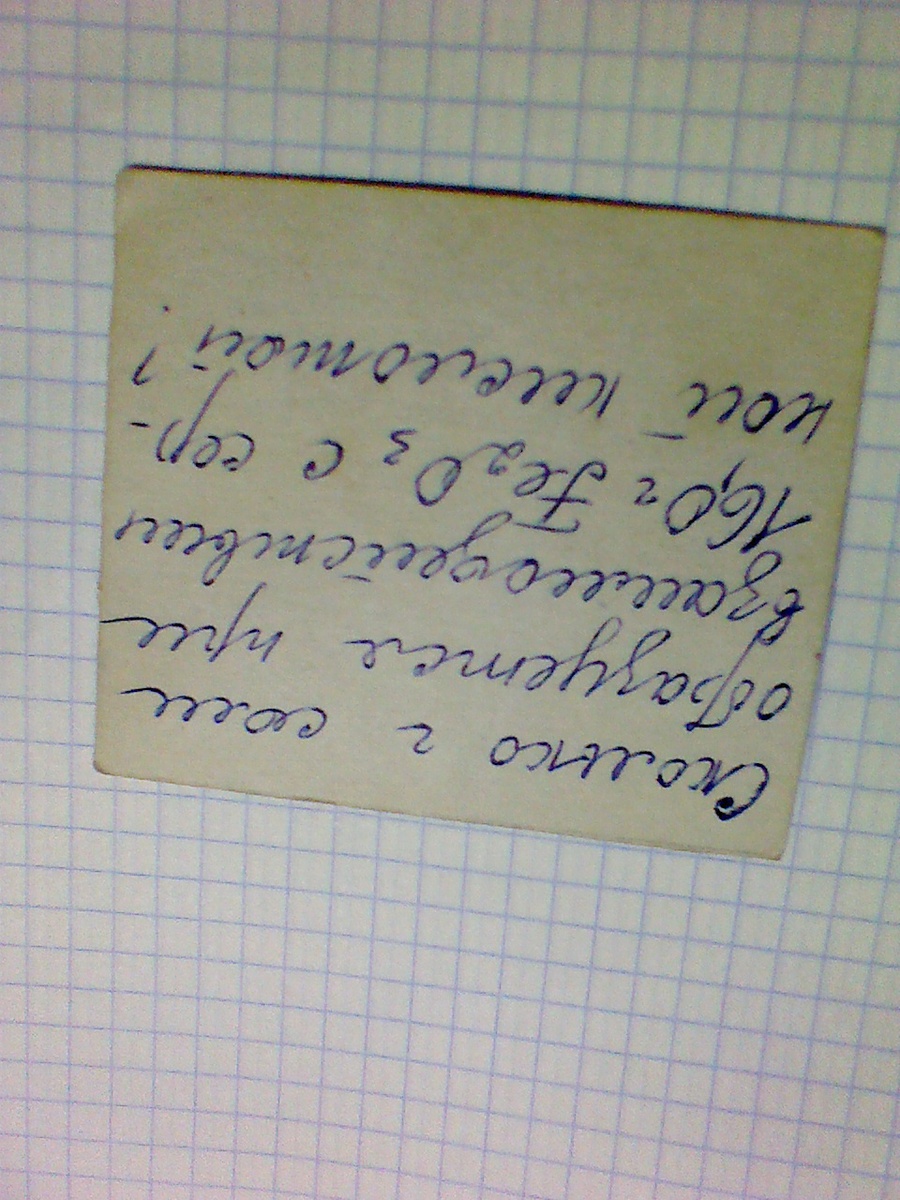 Сколько г соли
образуется при
взаимодействии
16,0 г Fe₂O₃ с сер-
ной кислотой?